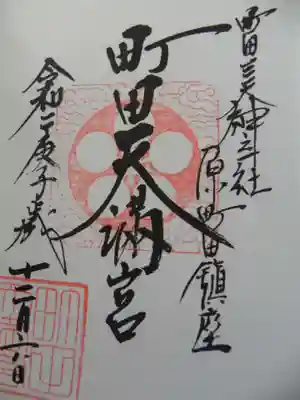 町田三天神三社
原町田鎮座
町田天満宮
令和二庚子歳
十二月六日